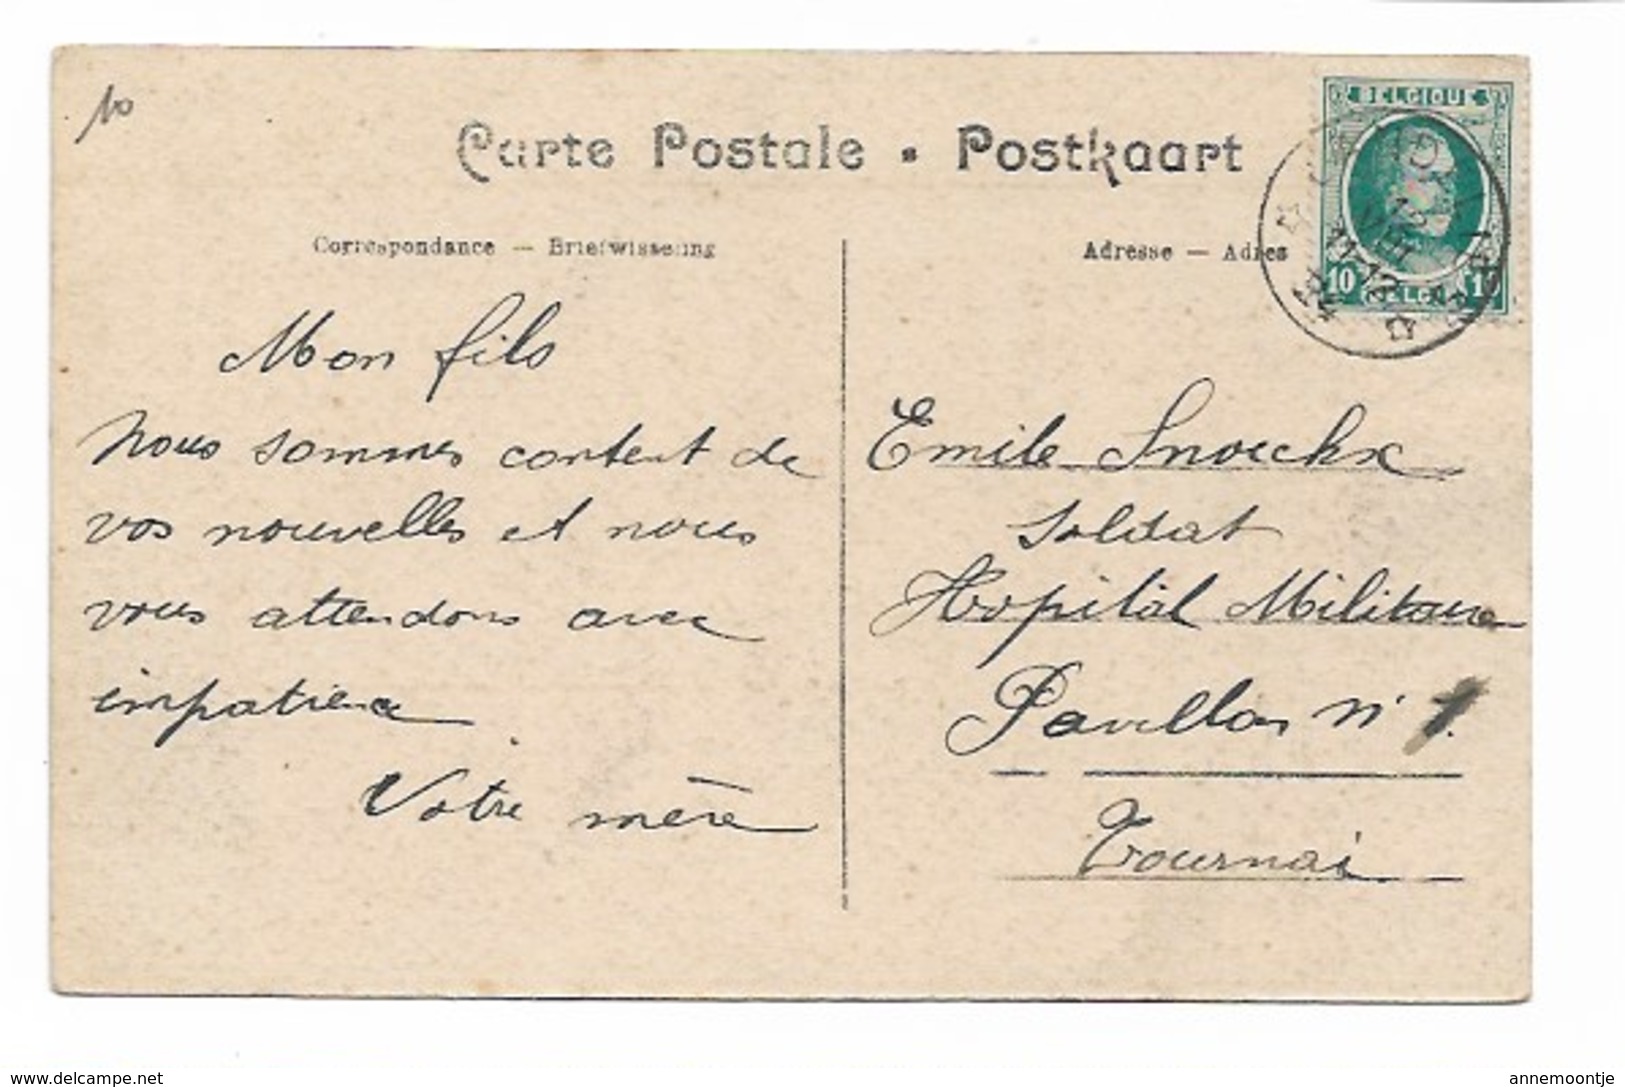 10
Carte Postale . Postkaart
Correspondance — Briefwisseling
Adresse — Adres
BELGIQUE
10
BELGI
Mon fils
nous sommes content de
vos nouvelles et nous
vous attendons avec
impatience
Votre mère
Emile Snoeckx
Soldat
Hopital Militaire
Pavillon n° 1.
Tournai
www.delcampe.net
annemoontje